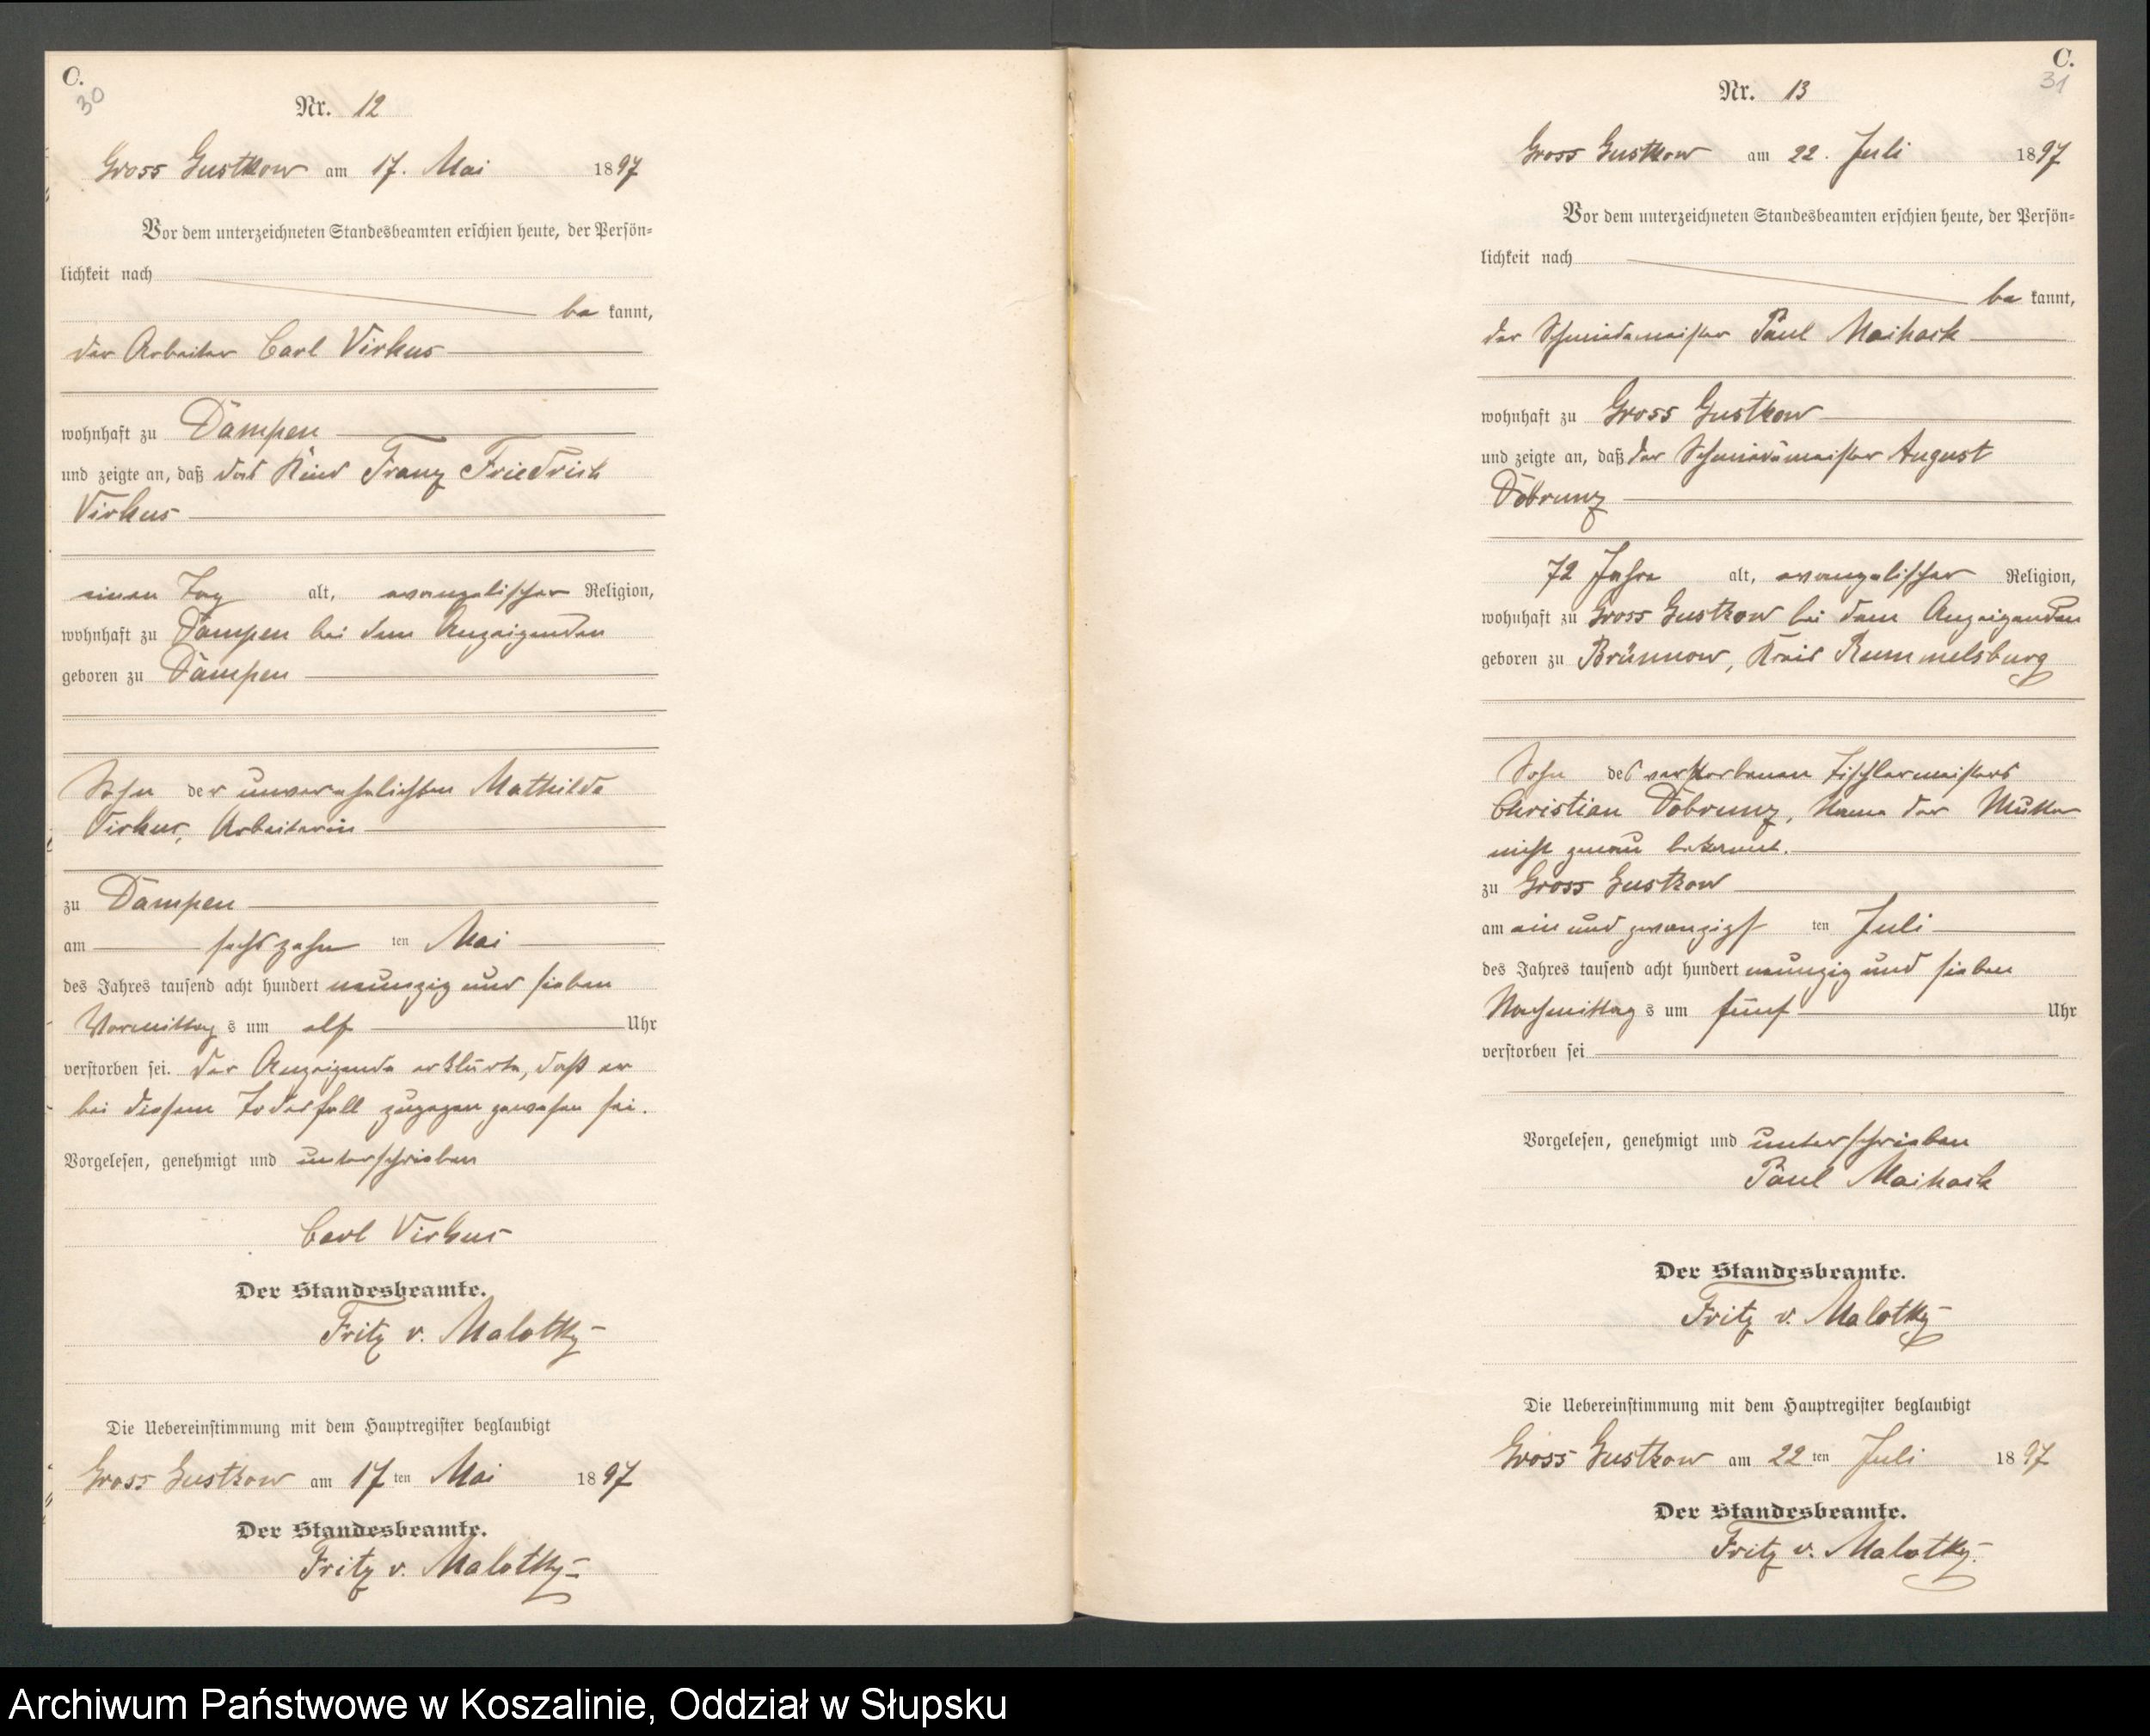 C.
30
Nr. 12
Gross Gustkow am 17. Mai 1897
Vor dem unterzeichneten Standesbeamten erschien heute, der Persön-
lichkeit nach
be kannt,
der Arbeiter Carl Virkus
wohnhaft zu Dampen
und zeigte an, daß das Kind Franz Friedrich
Virkus
einen Tag alt, evangelischer Religion,
wohnhaft zu Dampen bei dem Anzeigenden
geboren zu Dampen
Sohn der unverehelichten Mathilde
Virkus, Arbeiterin
zu Dampen
am sechszehn ten Mai
des Jahres tausend acht hundert neunzig und sieben
Vormittag s um elf Uhr
verstorben sei. Der Anzeigende erklärte, daß er
bei diesem Todesfall zugegen gewesen sei.
Vorgelesen, genehmigt und unterschrieben
Carl Virkus
Der Standesbeamte.
Fritz v. Malottky
Die Uebereinstimmung mit dem Hauptregister beglaubigt
Gross Gustkow am 17 ten Mai 1897
Der Standesbeamte.
Fritz v. Malottky
C.
31
Nr. 13
Gross Gustkow am 22. Juli 1897
Vor dem unterzeichneten Standesbeamten erschien heute, der Persön-
lichkeit nach
be kannt,
der Schmiedemeister Paul Maihack
wohnhaft zu Gross Gustkow
und zeigte an, daß der Schmiedemeister August
Dobrunz
72 Jahre alt, evangelischer Religion,
wohnhaft zu Gross Gustkow bei dem Anzeigenden
geboren zu Brünnow, Kreis Rummelsburg
Sohn des verstorbenen Tischlermeisters
Christian Dobrunz, Name der Mutter
nicht genau bekannt.
zu Gross Gustkow
am ein und zwanzigst ten Juli
des Jahres tausend acht hundert neunzig und sieben
Nachmittag s um fünf Uhr
verstorben sei
Vorgelesen, genehmigt und unterschrieben
Paul Maihack
Der Standesbeamte.
Fritz v. Malottky
Die Uebereinstimmung mit dem Hauptregister beglaubigt
Gross Gustkow am 22 ten Juli 1897
Der Standesbeamte.
Fritz v. Malottky.
Archiwum Państwowe w Koszalinie, Oddział w Słupsku